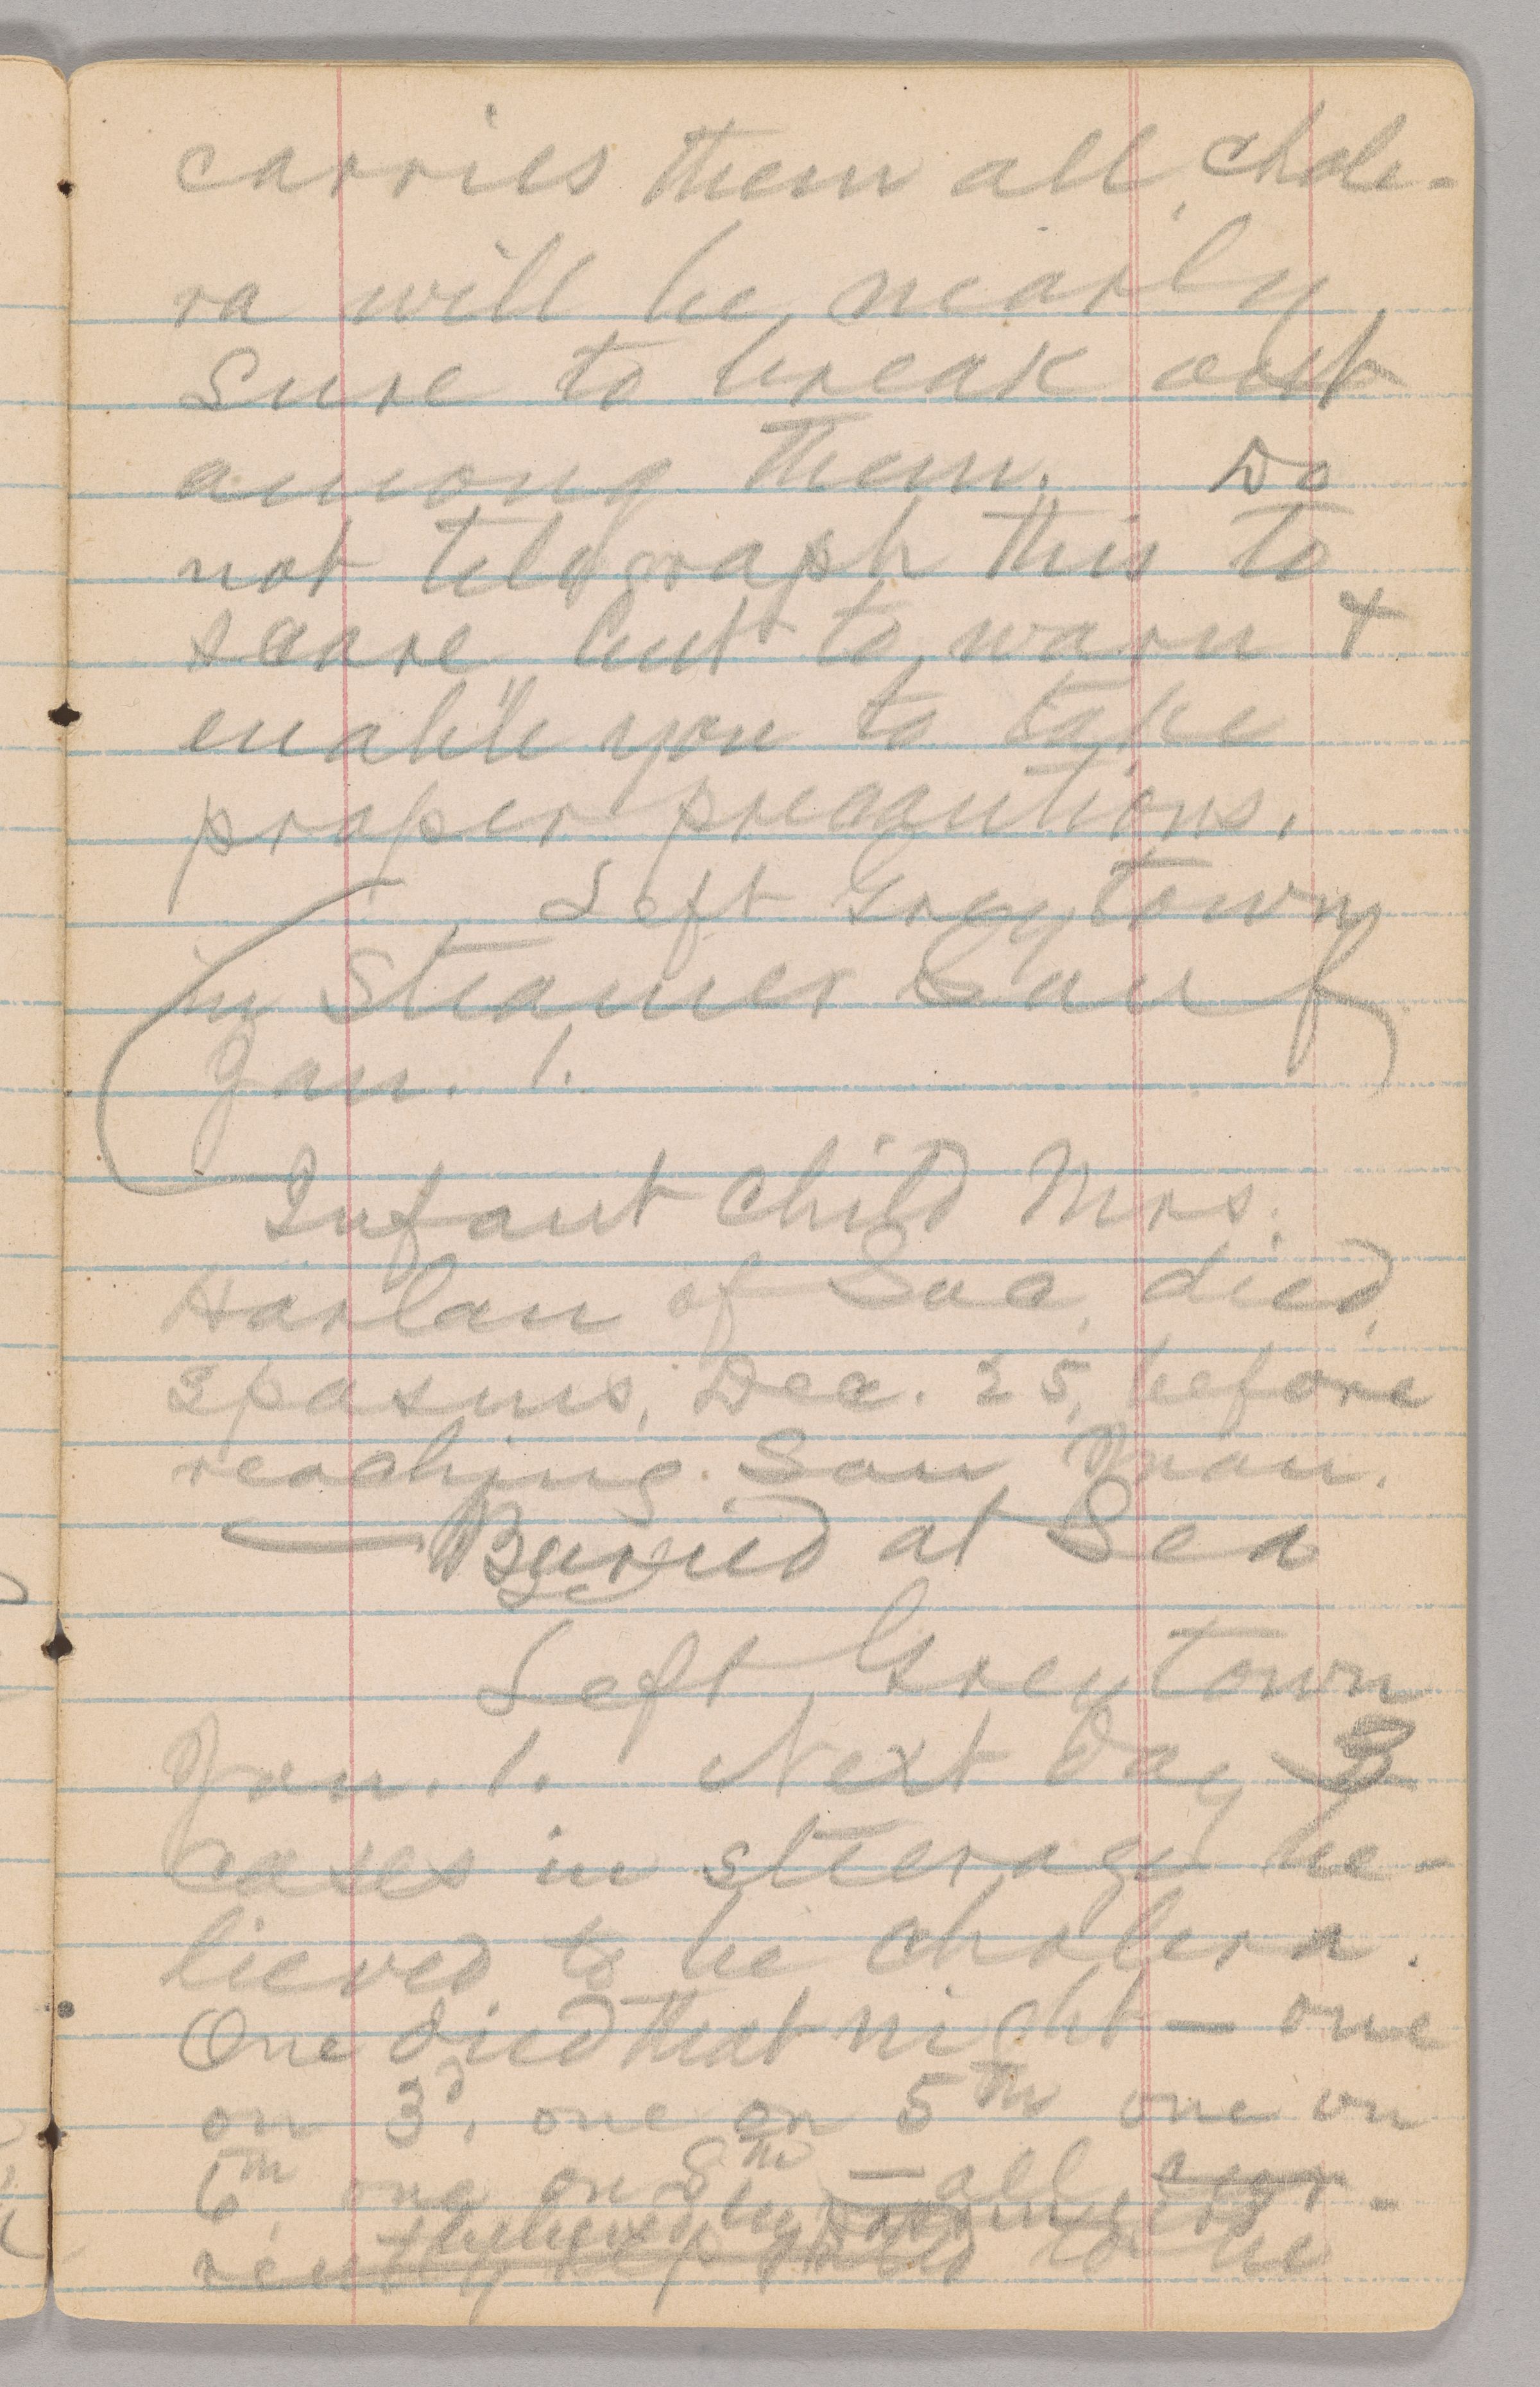 carries them all, chole-
ra will be nearly
sure to break out
among them. Do
not telegraph this to
scare but to warn +
enable you to take
proper precautions.
Left Greytown
in Steamer San f
Jan. 1.
Infant child Mrs.
Harlan of Sac, died,
spasms, Dec. 25, before
reaching San Juan.
Buried at Sea
Left Greytown
Jan. 1. Next day 3
cases in steerage be-
lieved to be cholera.
One died that night — one
on 3d, one on 5th one on
6th, one on 8th — all cur-
believed by
rently reported to be